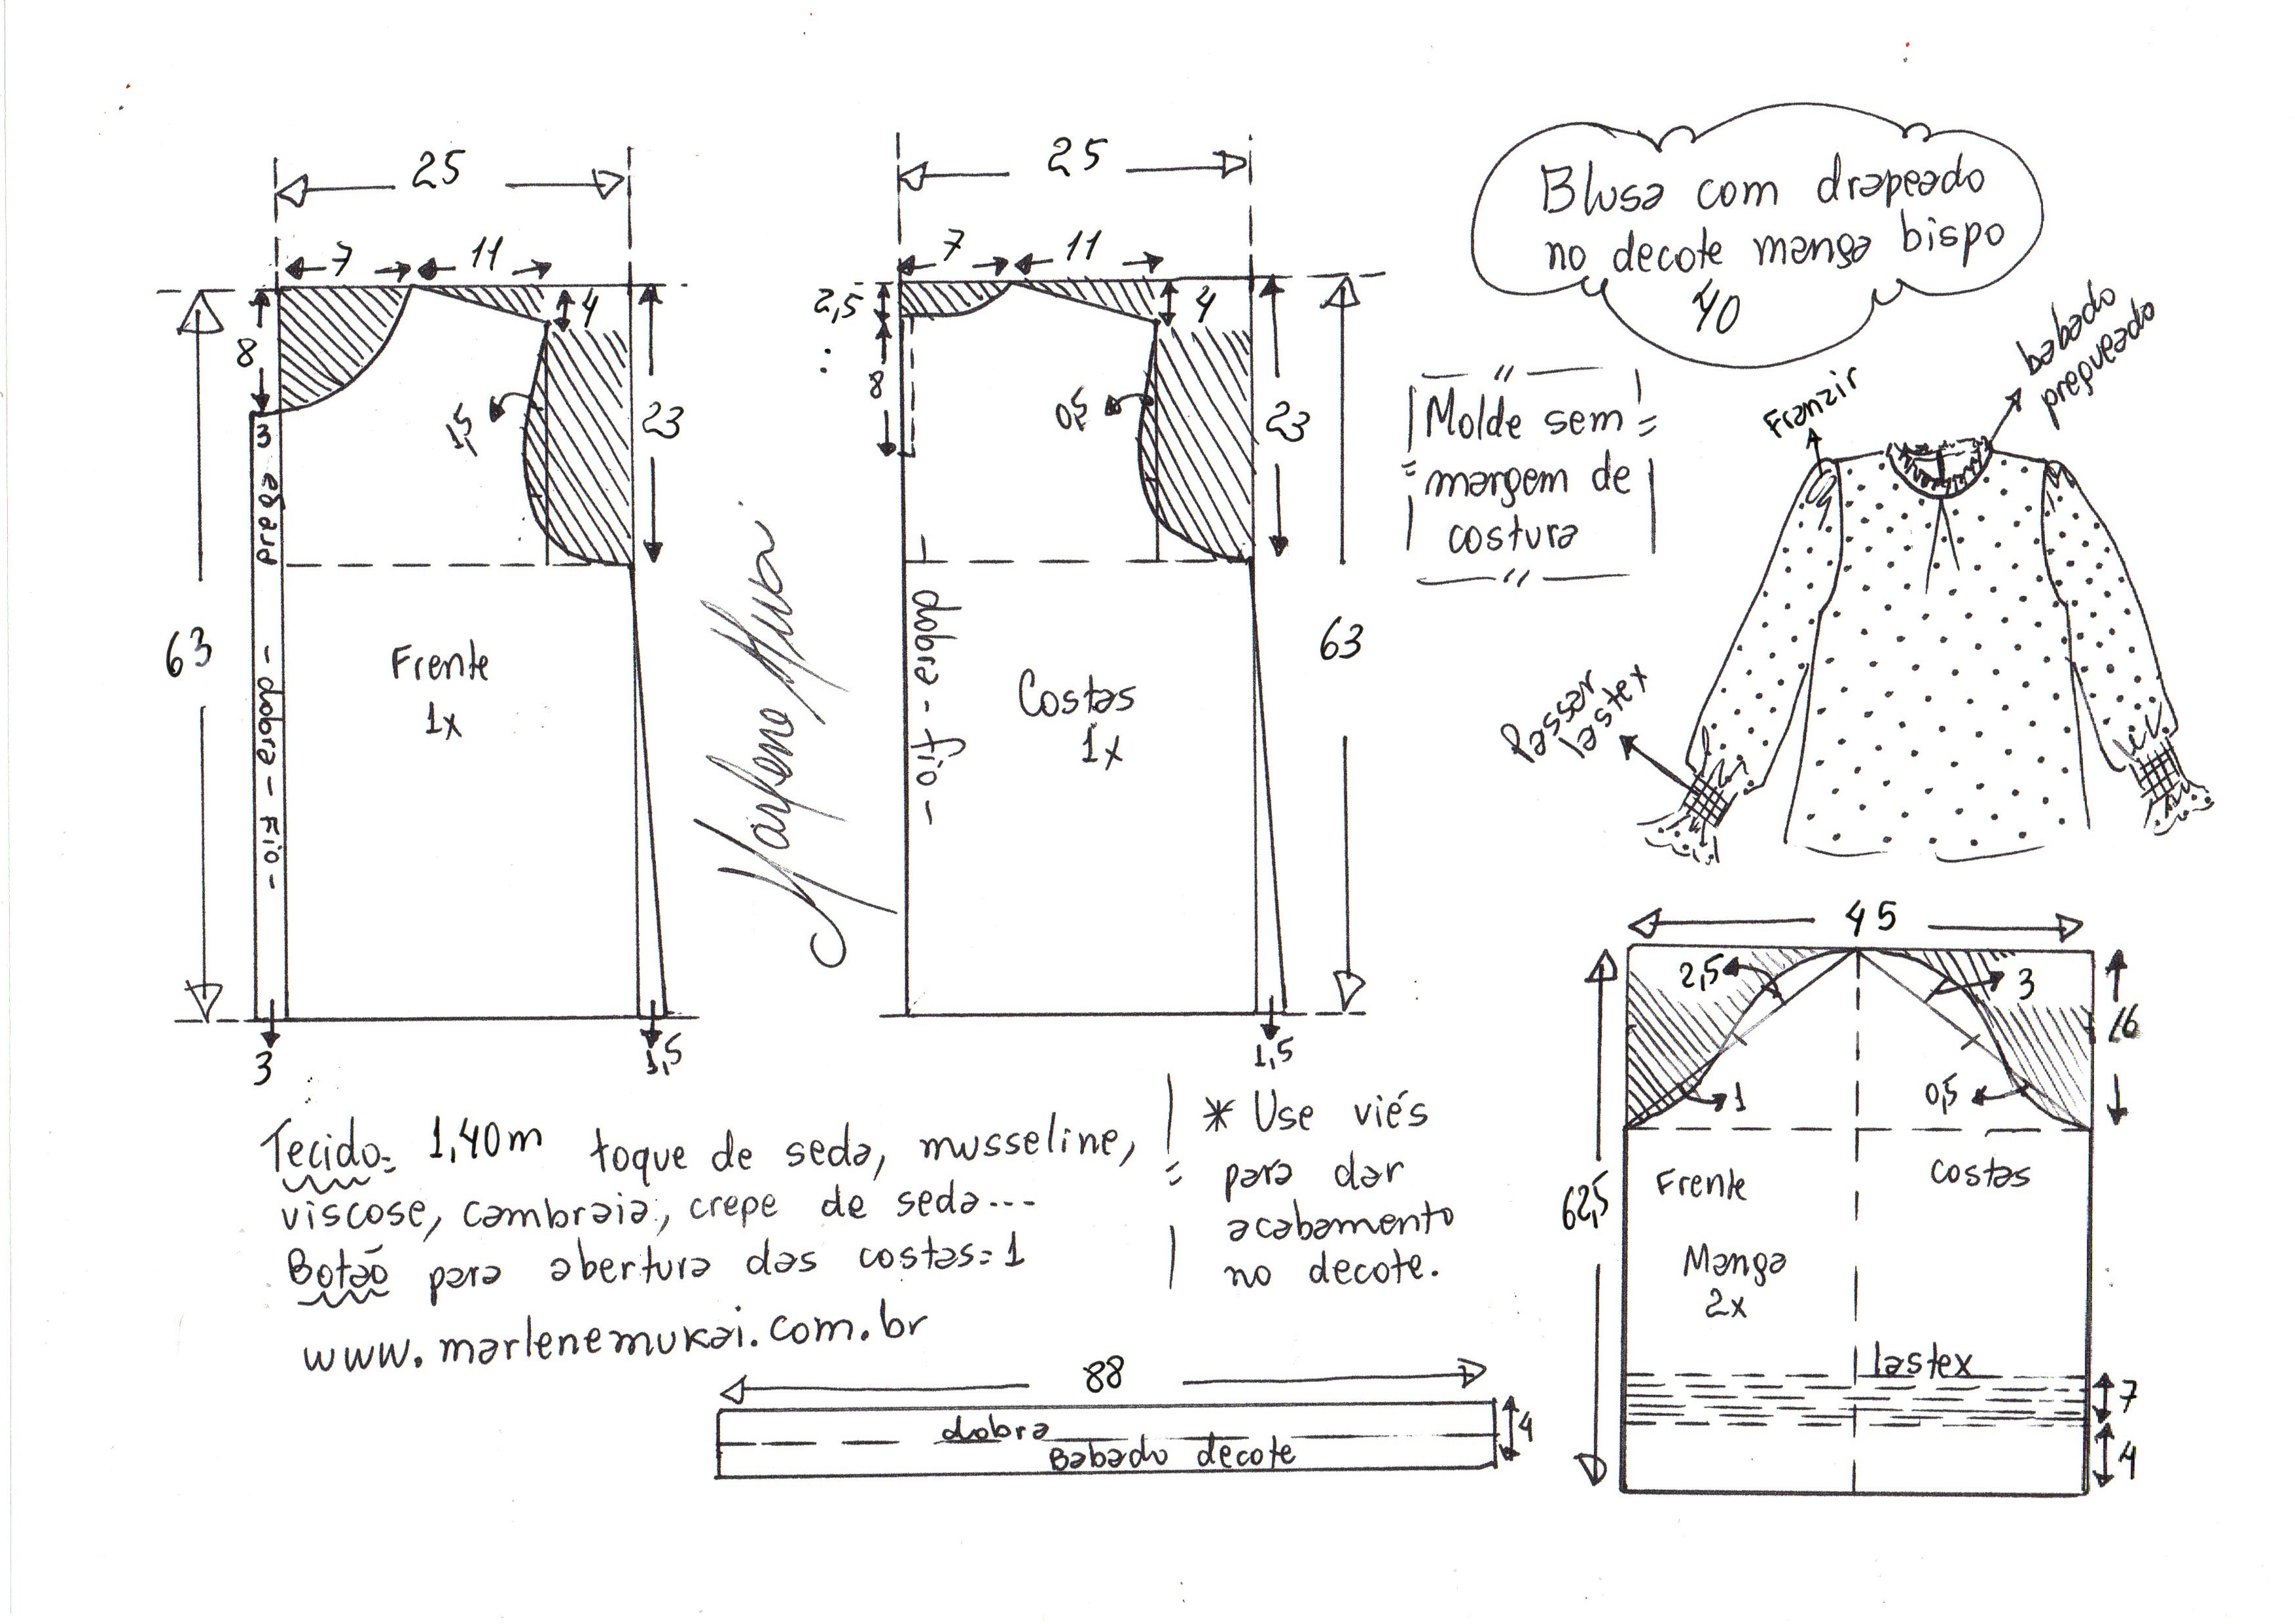 25
7
11
4
8
3
prega
1,5
23
63
Frente
1x
- dobra - Fio -
3
1,5
25
7
11
2,5
4
8
0,5
23
63
Costas
1x
dobra - fio -
1,5
Blusa com drapeado
no decote manga bispo
40
Molde sem
margem de
costura
Franzir
babado
pregueado
Passar
lastex
Tecido= 1,40m toque de seda, musseline,
viscose, cambraia, crepe de seda...
Botão para abertura das costas=1
www.marlenemukai.com.br
* Use viés
para dar
acabamento
no decote.
88
dobra
Babado decote
4
45
2,5
3
16
1
0,5
62,5
Frente
costas
Manga
2x
lastex
7
4